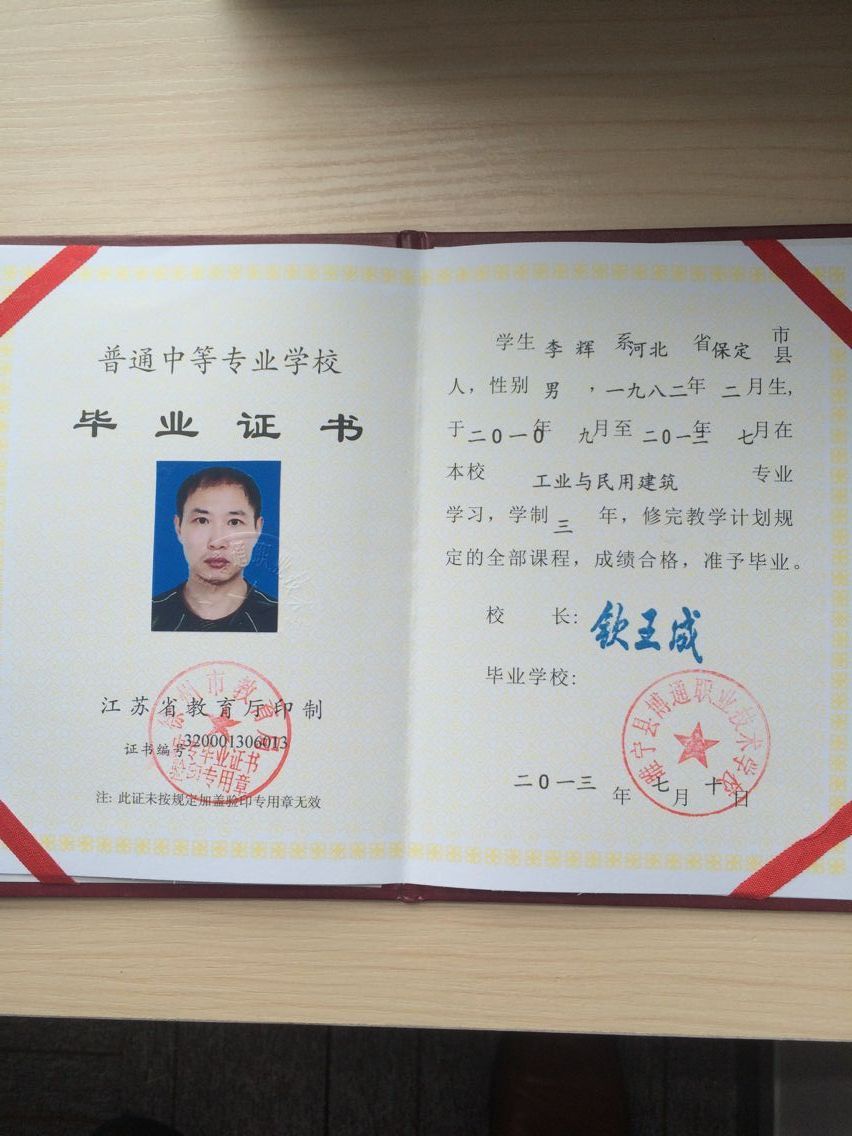 普通中等专业学校
毕业证书
江苏省教育厅印制
证书编号320001306013
徐州市教育局
中专毕业证书
验印专用章
注: 此证未按规定加盖验印专用章无效
学生 李辉 系河北 省保定 市县
人，性别 男 ，一九八二年 二月生，
于二0一0年 九月至二0一三年 七月在
本校 工业与民用建筑 专业
学习，学制三 年，修完教学计划规
定的全部课程，成绩合格，准予毕业。
校 长: 钦王成
毕业学校:
睢宁县博通职业技术学校
二0一三 年 七月 十日